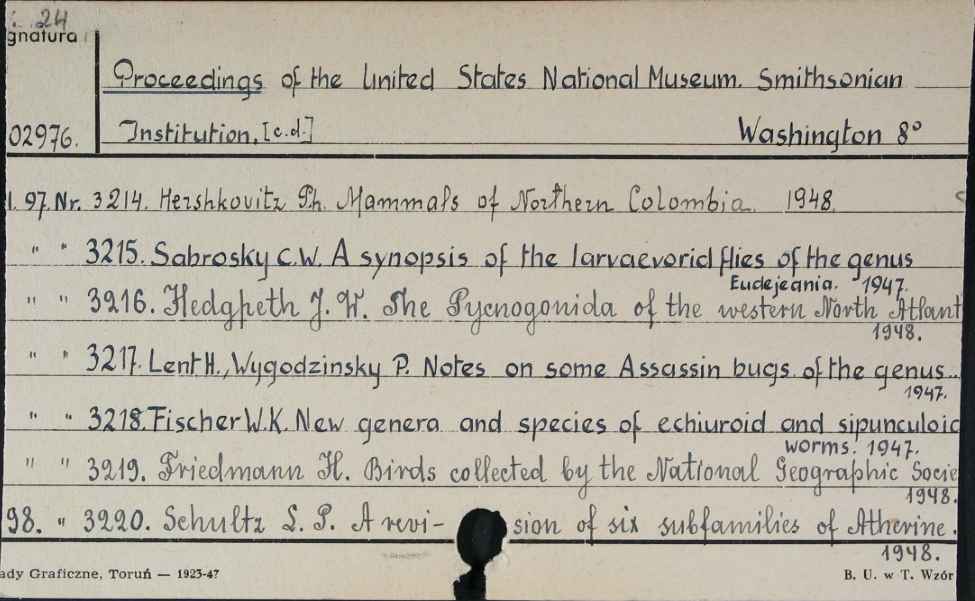 24
gnatura
Proceedings of the United States National Museum. Smithsonian
02976. Institution. [c.d.] Washington 8°
l. 97. Nr. 3214. Hershkovitz Ph. Mammals of Northern Colombia. 1948.
" " 3215. Sabrosky C.W. A synopsis of the larvaevorid flies of the genus
Eudejeania. 1947.
" " 3216. Hedgpeth J. W. The Pycnogonida of the western North Atlant
1948.
" " 3217. Lent H., Wygodzinsky P. Notes on some Assassin bugs of the genus...
1947.
" " 3218. Fischer W.K. New genera and species of echiuroid and sipunculoid
worms. 1947.
" " 3219. Friedmann H. Birds collected by the National Geographic Socie
1948.
98. " 3220. Schultz L. P. A revi- sion of six subfamilies of Atherine.
1948.
ady Graficzne, Toruń — 1923-47 B. U. w T. Wzór